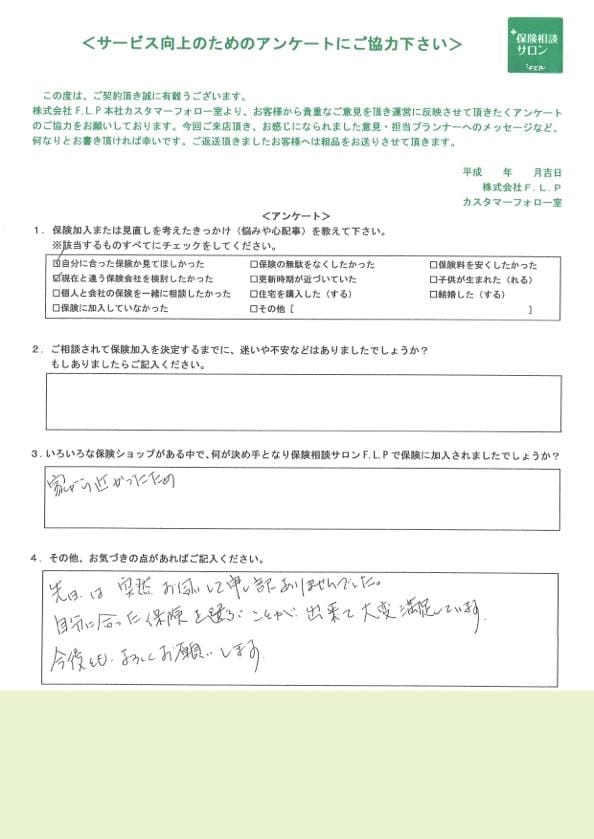 ＜サービス向上のためのアンケートにご協力下さい＞
保険相談
サロン
F.L.P
この度は、ご契約頂き誠に有難うございます。
株式会社F.L.P本社カスタマーフォロー室より、お客様から貴重なご意見を頂き運営に反映させて頂きたくアンケート
のご協力をお願いしております。今回ご来店頂き、お感じになられました意見・担当プランナーへのメッセージなど、
何なりとお書き頂ければ幸いです。ご返送頂きましたお客様へは粗品をお送りさせて頂きます。
平成　　年　　月吉日
株式会社F.L.P
カスタマーフォロー室
＜アンケート＞
1．保険加入または見直しを考えたきっかけ（悩みや心配事）を教えて下さい。
※該当するものすべてにチェックをしてください。
☑自分に合った保険か見てほしかった　□保険の無駄をなくしたかった　□保険料を安くしたかった
☑現在と違う保険会社を検討したかった　□更新時期が近づいていた　□子供が生まれた（れる）
□個人と会社の保険を一緒に相談したかった　□住宅を購入した（する）　□結婚した（する）
□保険に加入していなかった　□その他［　　　　］
2．ご相談されて保険加入を決定するまでに、迷いや不安などはありましたでしょうか？
もしありましたらご記入ください。
3．いろいろな保険ショップがある中で、何が決め手となり保険相談サロンF.L.Pで保険に加入されましたでしょうか？
家から近かったため
4．その他、お気づきの点があればご記入ください。
先日は突然お伺いして申し訳ありませんでした。
自分に合った保険を選ぶことが出来て大変満足しています。
今後ともよろしくお願いします。